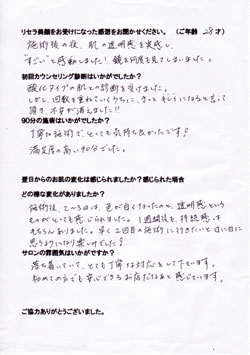 リセラ美顔をお受けになった感想をお聞かせください。　（ご年齢　28才）
施術後の夜、肌の透明感を実感し、
"すごい"と感動しました！鏡を何度も見てしまいました。
初回カウンセリング診断はいかがでしたか？
酸化タイプの肌との診断を受けました。
しかし、回数を重ねていくうちに、きっとキレイになると言って
頂き、不安が消えました!!
90分の施術はいかがでしたか？
丁寧な施術で、とっても気持ち良かったです！
満足度の高い90分でした。
翌日からのお肌の変化は感じられましたか？感じられた場合
どの様な変化がありましたか？
施術後、2〜3日は、色が白くなったのと、透明感という
ものがとっても感じられました。1週間後を、持続感は
もちろんありました。早く2回目の施術に行きたいと日に日に
思うようになり楽しみでした！
サロンの雰囲気はいかがですか？
落ち着いていて、とても丁寧な対応をして下さいます。
初めての方でも安心できるお店だなぁと感じています。
ご協力ありがとうございました。